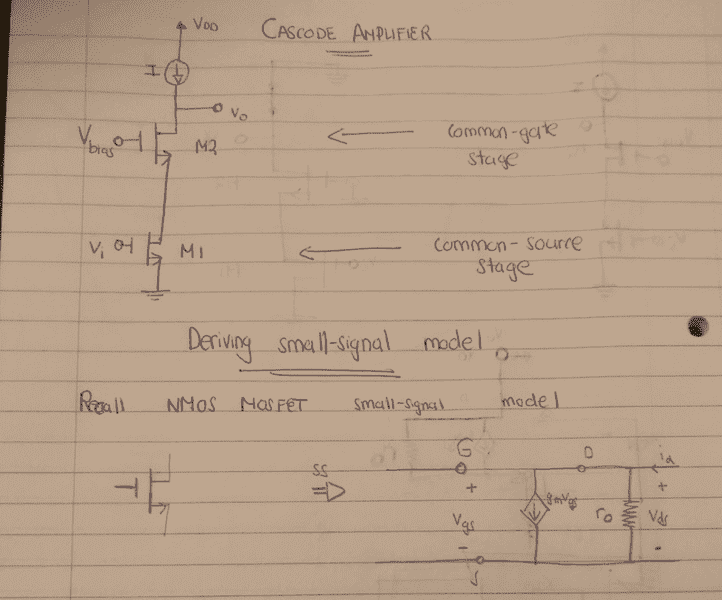 VDD
CASCODE AMPLIFIER
I
Vo
Vbias
M2
common-gate
stage
Vi
M1
common-source
stage
Deriving small-signal model
Recall NMOS MOSFET small-signal model
G
D
id
SS
+
+
gmvgs
Vgs
ro
Vds
-
-
S